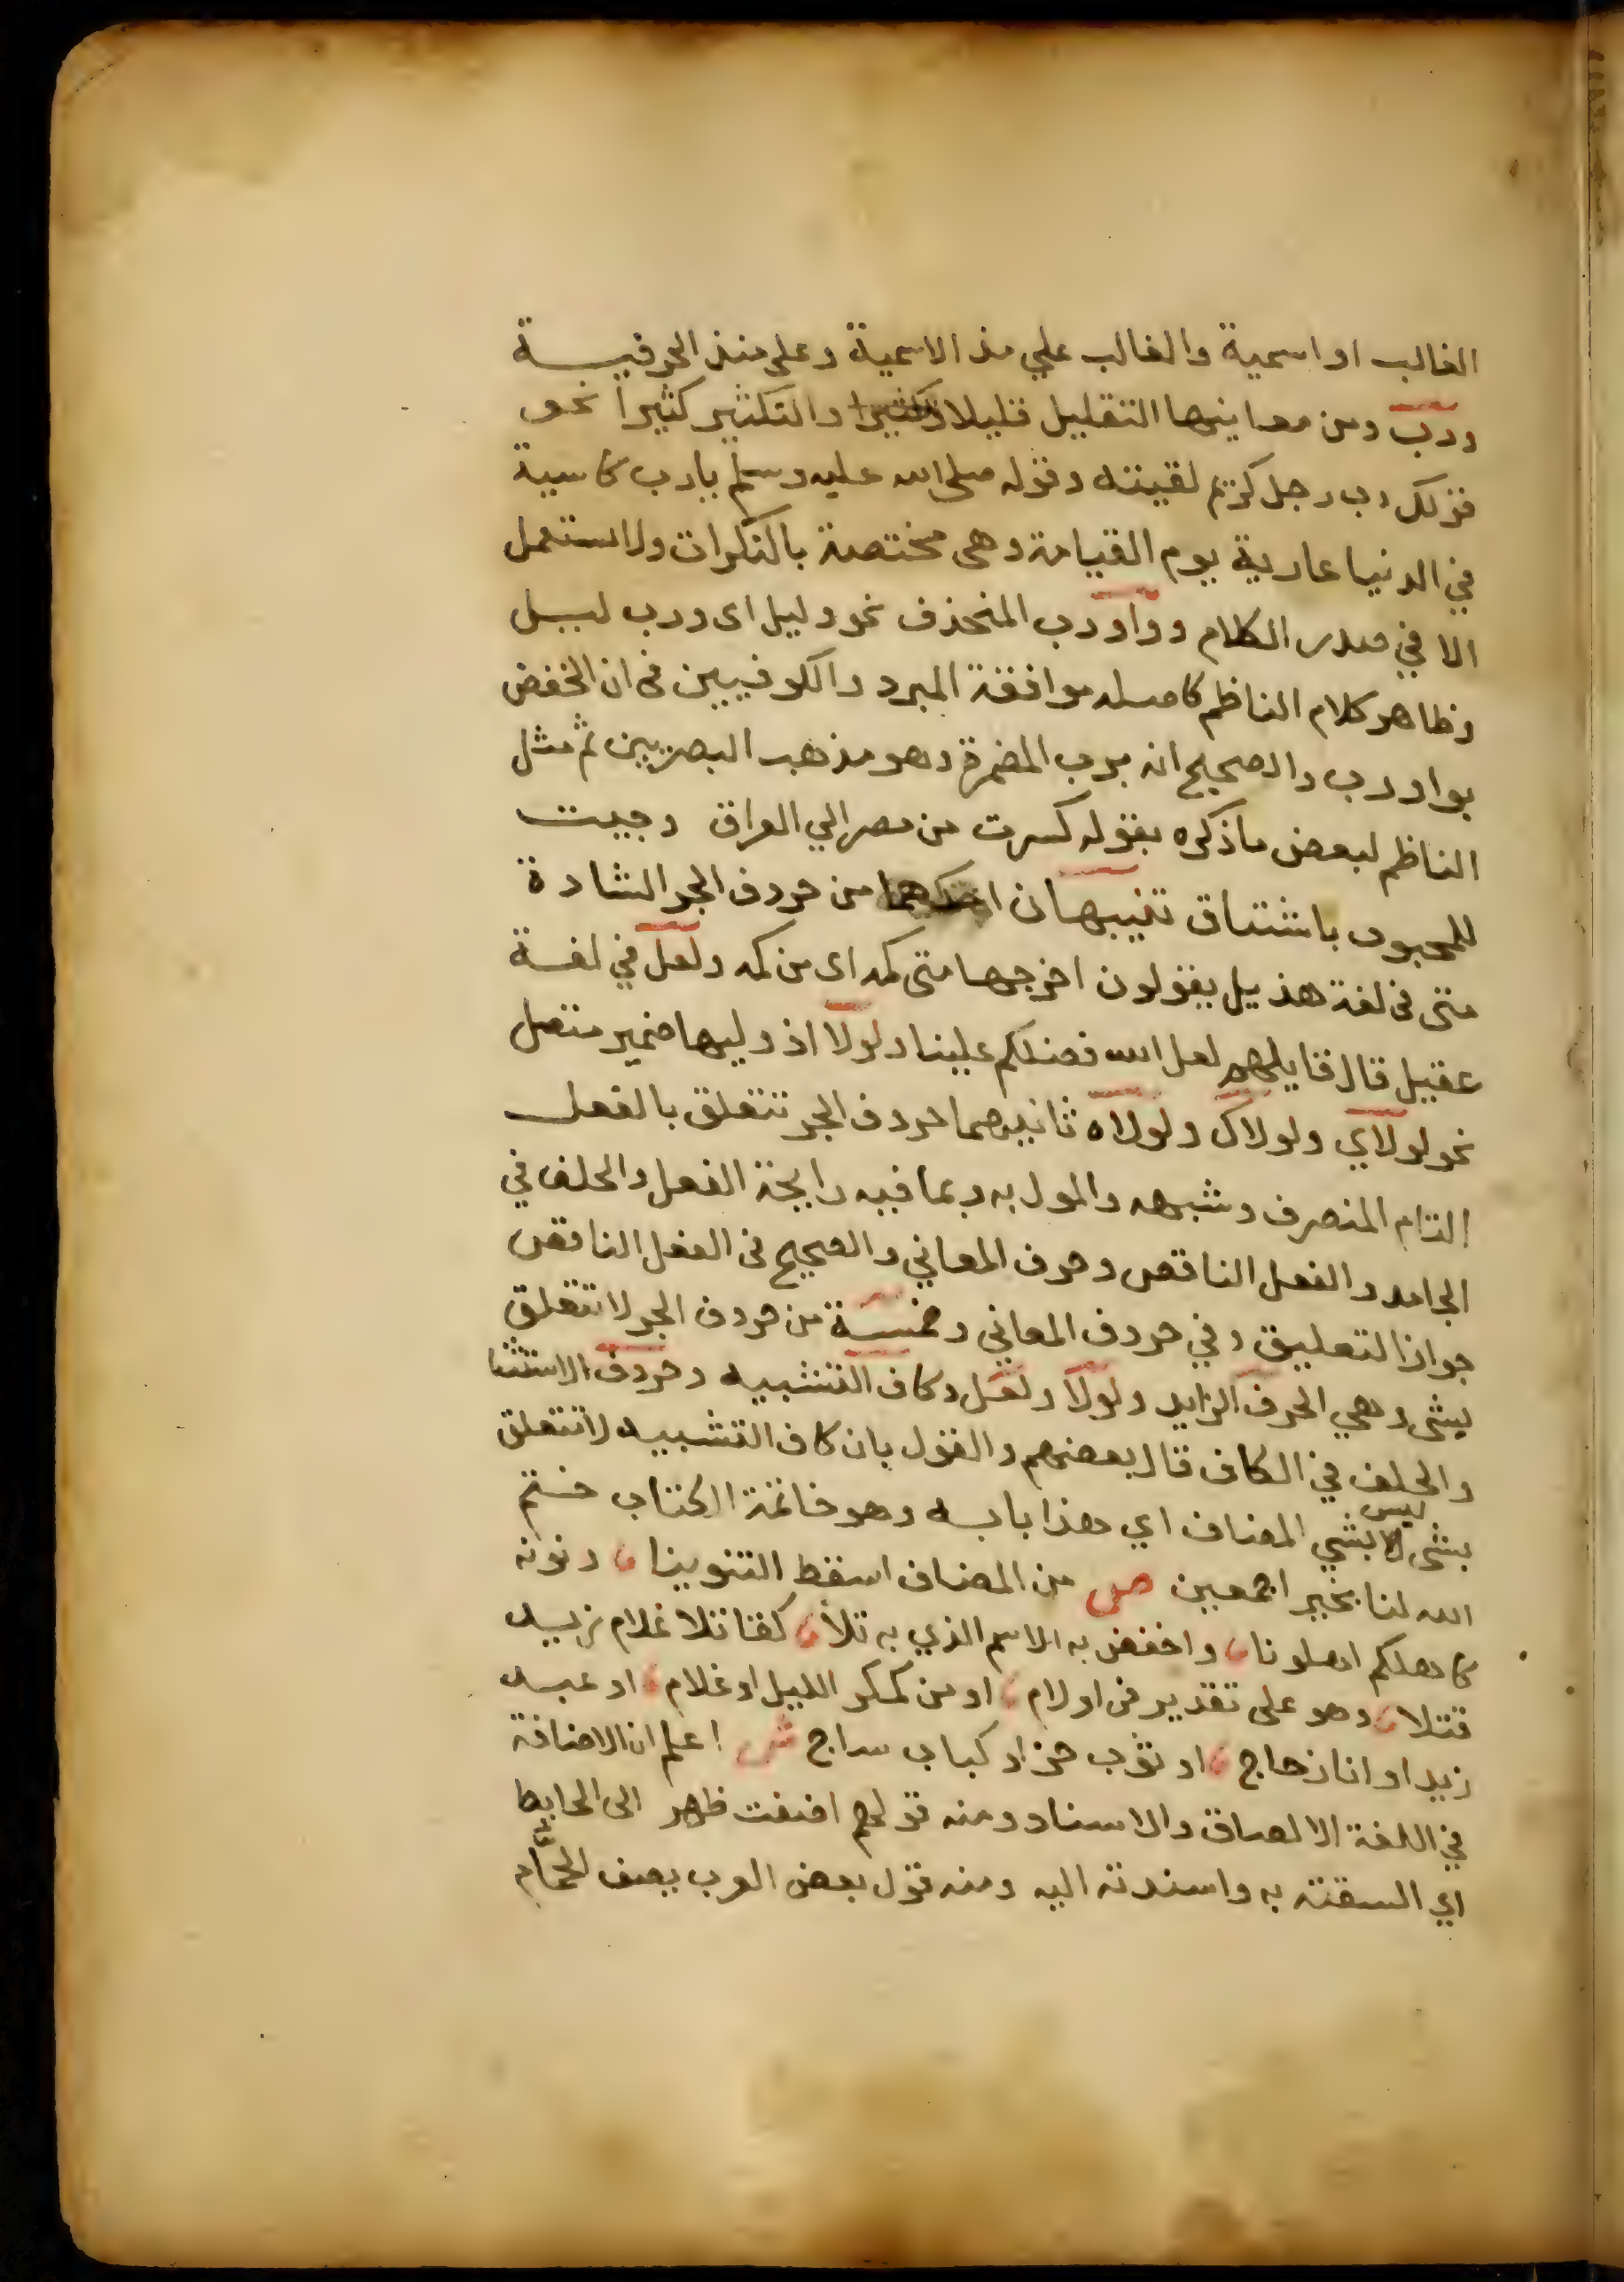 الغالب او اسمية والغالب علي مذ الاسمية وعلى منذ الحرفيـــة
ورب ومن معانيها التقليل قليلا والتكثير كثيرا نحو
قولك رب رجل كريم لقيته وقوله صلى الله عليه وسلم يارب كاسية
في الدنيا عارية يوم القيامة وهى مختصة بالنكرات ولا تستعمل
الا في صدر الكلام وواو رب المنحذف نحو وليل اى ورب ليــل
وظاهر كلام الناظم كاصله موافقة المبرد والكوفيين في ان الخفض
بواو رب والصحيح انه برب المضمرة وهو مذهب البصريين ثم مثل
الناظم لبعض ماذكره بقوله كسرت من مصر الي العراق وجيت
للمحبوب باشتياق تنبيهان احدهما من حروف الجر الشاذة
متى في لغة هذيل يقولون اخرجها متى كمه اى من كمه ولعل في لغــة
عقيل قال قايلهم لعل الله فضلكم علينا ولولا اذ وليها ضمير متصل
نحو لولاي ولولاك ولولاه ثانيهما حروف الجر تتعلق بالفعل
التام المنصرف وشبهه والمول به وبما فيه رايحة الفعل والخلف في
الجامد والفعل الناقص وحرف المعاني والصحيح في الفعل الناقص
جواز التعليق وفي حروف المعاني وخمســة من حروف الجر لا تتعلق
بشى وهي الحرف الزايد ولولا ولعل وكاف التشبيه وحروف الاستثنا
والخلف في الكاف قال بعضهم والقول بان كاف التشبيه لا تتعلق
بشى ليس بشي المضاف اي هذا بابــه وهو خاتمة الكتاب ختم
الله لنا بخير اجمعين ص من المضاف اسقط التنوينا ، ونونه
كاهلكم اهلونا ، واخفض به الاسم الذي به تلا ، كقاتلا غلام زيــد
قتلا ، وهو على تقدير في او لام ، او من كمكر الليل او غلام ، او عبــد
زيد او انا زجاج ، او ثوب خز او كباب ساج ش اعلم ان الاضافة
في اللغة الالصاق والاسناد ومنه قولهم اضفت ظهر الى الحايط
اي السقته به واسندته اليه ومنه قول بعض العرب يصف الحمام